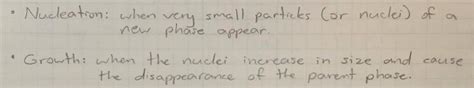 • Nucleation: when very small particles (or nuclei) of a
new phase appear.
• Growth: when the nuclei increase in size and cause
the disappearance of the parent phase.